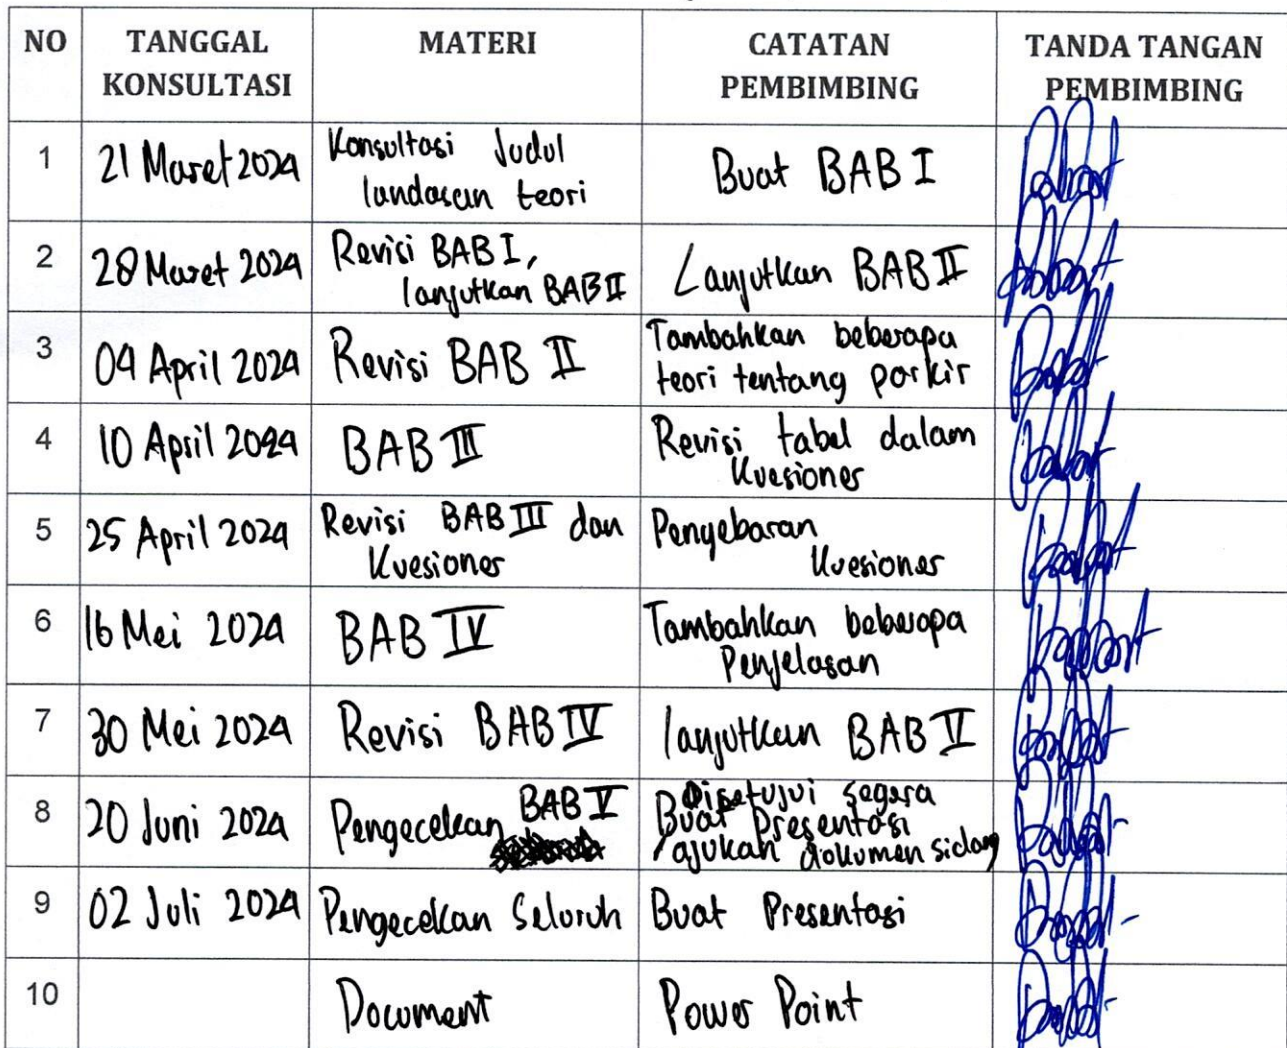 NO TANGGAL KONSULTASI MATERI CATATAN PEMBIMBING TANDA TANGAN PEMBIMBING
1 21 Maret 2024 Konsultasi Judul landasan teori Buat BAB I
2 28 Maret 2024 Revisi BAB I, lanjutkan BAB II Lanjutkan BAB II
3 04 April 2024 Revisi BAB II Tambahkan beberapa teori tentang parkir
4 10 April 2024 BAB III Revisi tabel dalam Kuesioner
5 25 April 2024 Revisi BAB III dan Kuesioner Penyebaran Kuesioner
6 16 Mei 2024 BAB IV Tambahkan beberapa Penjelasan
7 30 Mei 2024 Revisi BAB IV lanjutkan BAB V
8 20 Juni 2024 Pengecekan BAB V Disetujui segera Buat Presentasi ajukan dokumen sidang
9 02 Juli 2024 Pengecekan Seluruh Buat Presentasi
10 Document Power Point